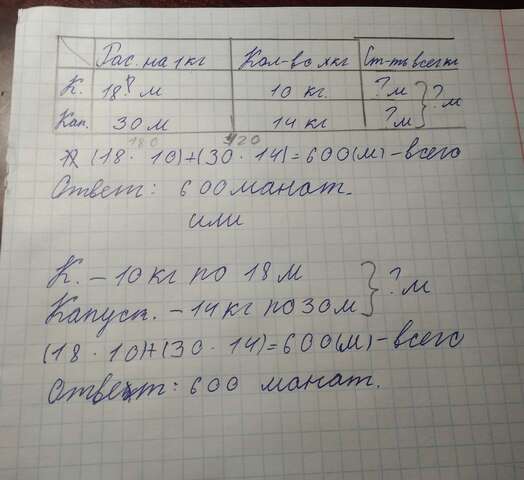 Рас. на 1 кг Кол-во кг Ст-ть всего
К. 18 м 10 кг. ? м
Кап. 30 м 14 кг ? м } ? м
180 420
(18 · 10)+(30 · 14)=600(м)-всего
Ответ: 600 манат.
или
К. – 10 кг по 18 м
Капуст. – 14 кг по 30 м } ? м
(18 · 10)+(30 · 14)=600(м)-всего
Ответ: 600 манат.